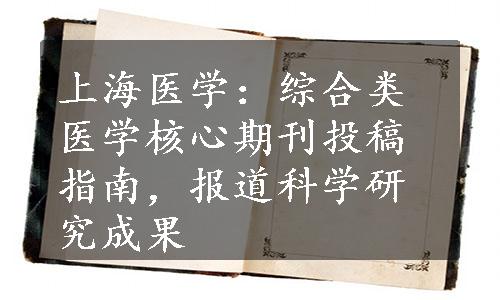 上海医学：综合类
医学核心期刊投稿
指南，报道科学研
究成果